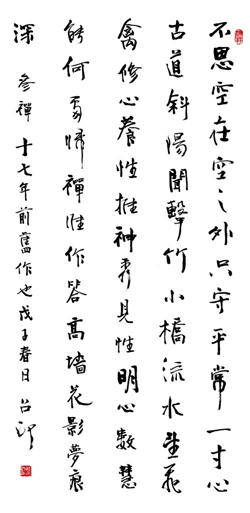 不思空在空之外只守平常一寸心
古道斜陽聞擊竹小橋流水飛
禽修心養性推神秀見性明心數慧
能何歸禪誰作答高墙花影夢痕
深 參禪 十七年前舊作也戊子春日